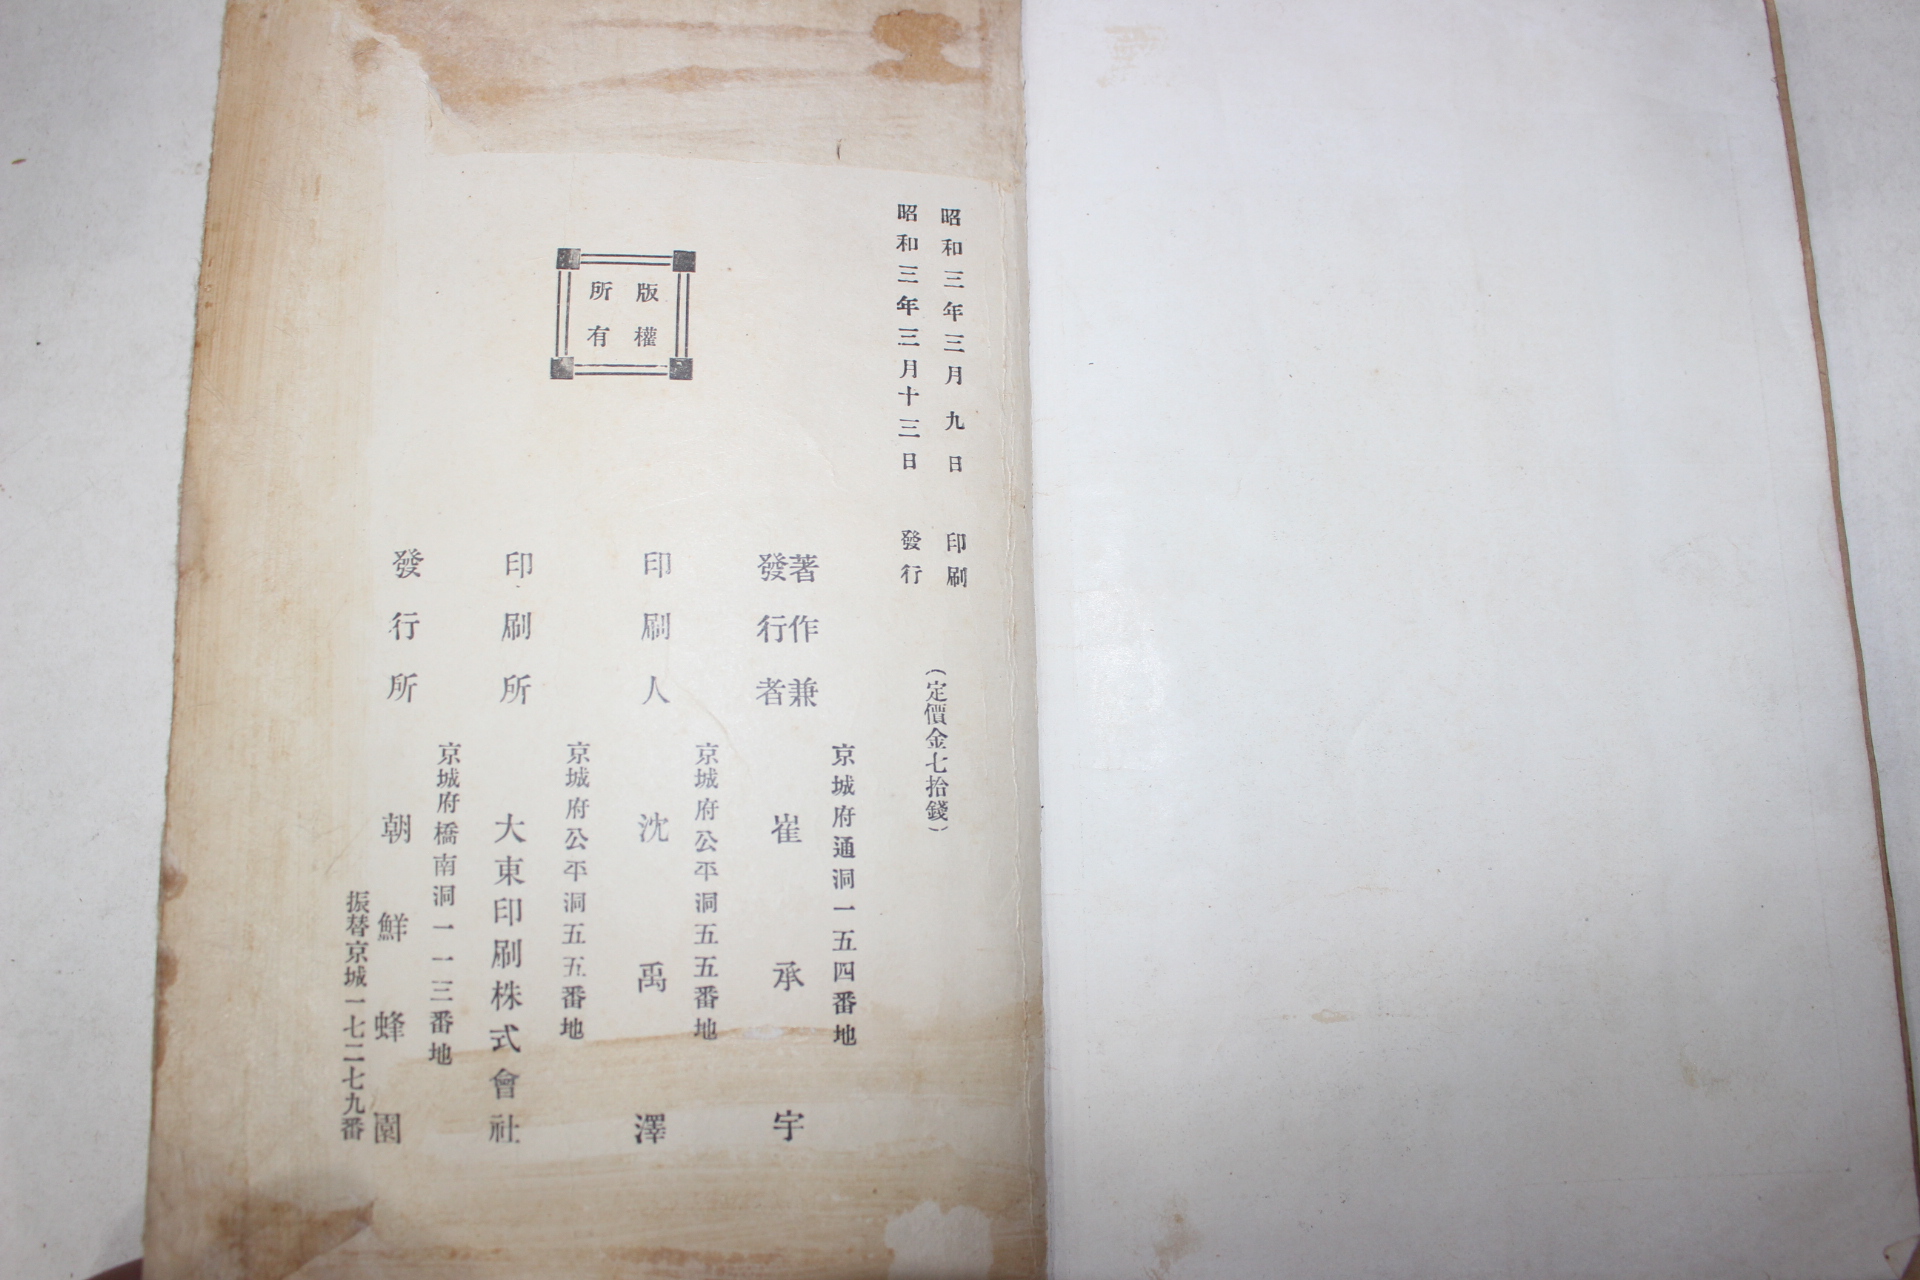 昭和三年三月九日 印刷
昭和三年三月十三日 發行
(定價金七拾錢)
版權
所有
京城府通洞一五四番地
著作兼
發行者
崔承宇
京城府公平洞五五番地
印刷人 沈禹澤
京城府公平洞五五番地
印刷所 大東印刷株式會社
京城府橋南洞一一三番地
發行所 朝鮮蜂園
振替京城一七二七九番